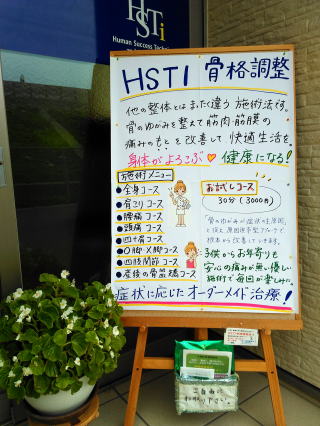 HSTi
Human Success Techni
HSTI 骨格調整
他の整体とはまったく違う施術法です。
骨のゆがみを整えて筋肉・筋膜の
痛みのもとを改善して快適生活を。
身体がよろこぶ♥健康になる!
施術メニュー
●全身コース
●肩こりコース
●腰痛コース
●頭痛コース
●四十肩コース
●O脚・X脚コース
●四肢関節コース
●産後の骨盤矯コース
お試しコース
30分(3000円)
「骨のゆがみが症状の主原因」
根本から改善していきます。
子供からお年寄りも
安心の痛みが無い優しい
施術で毎回が楽しみに
症状に応じたオーダーメイド治療!
ご自由に
お取り下さい